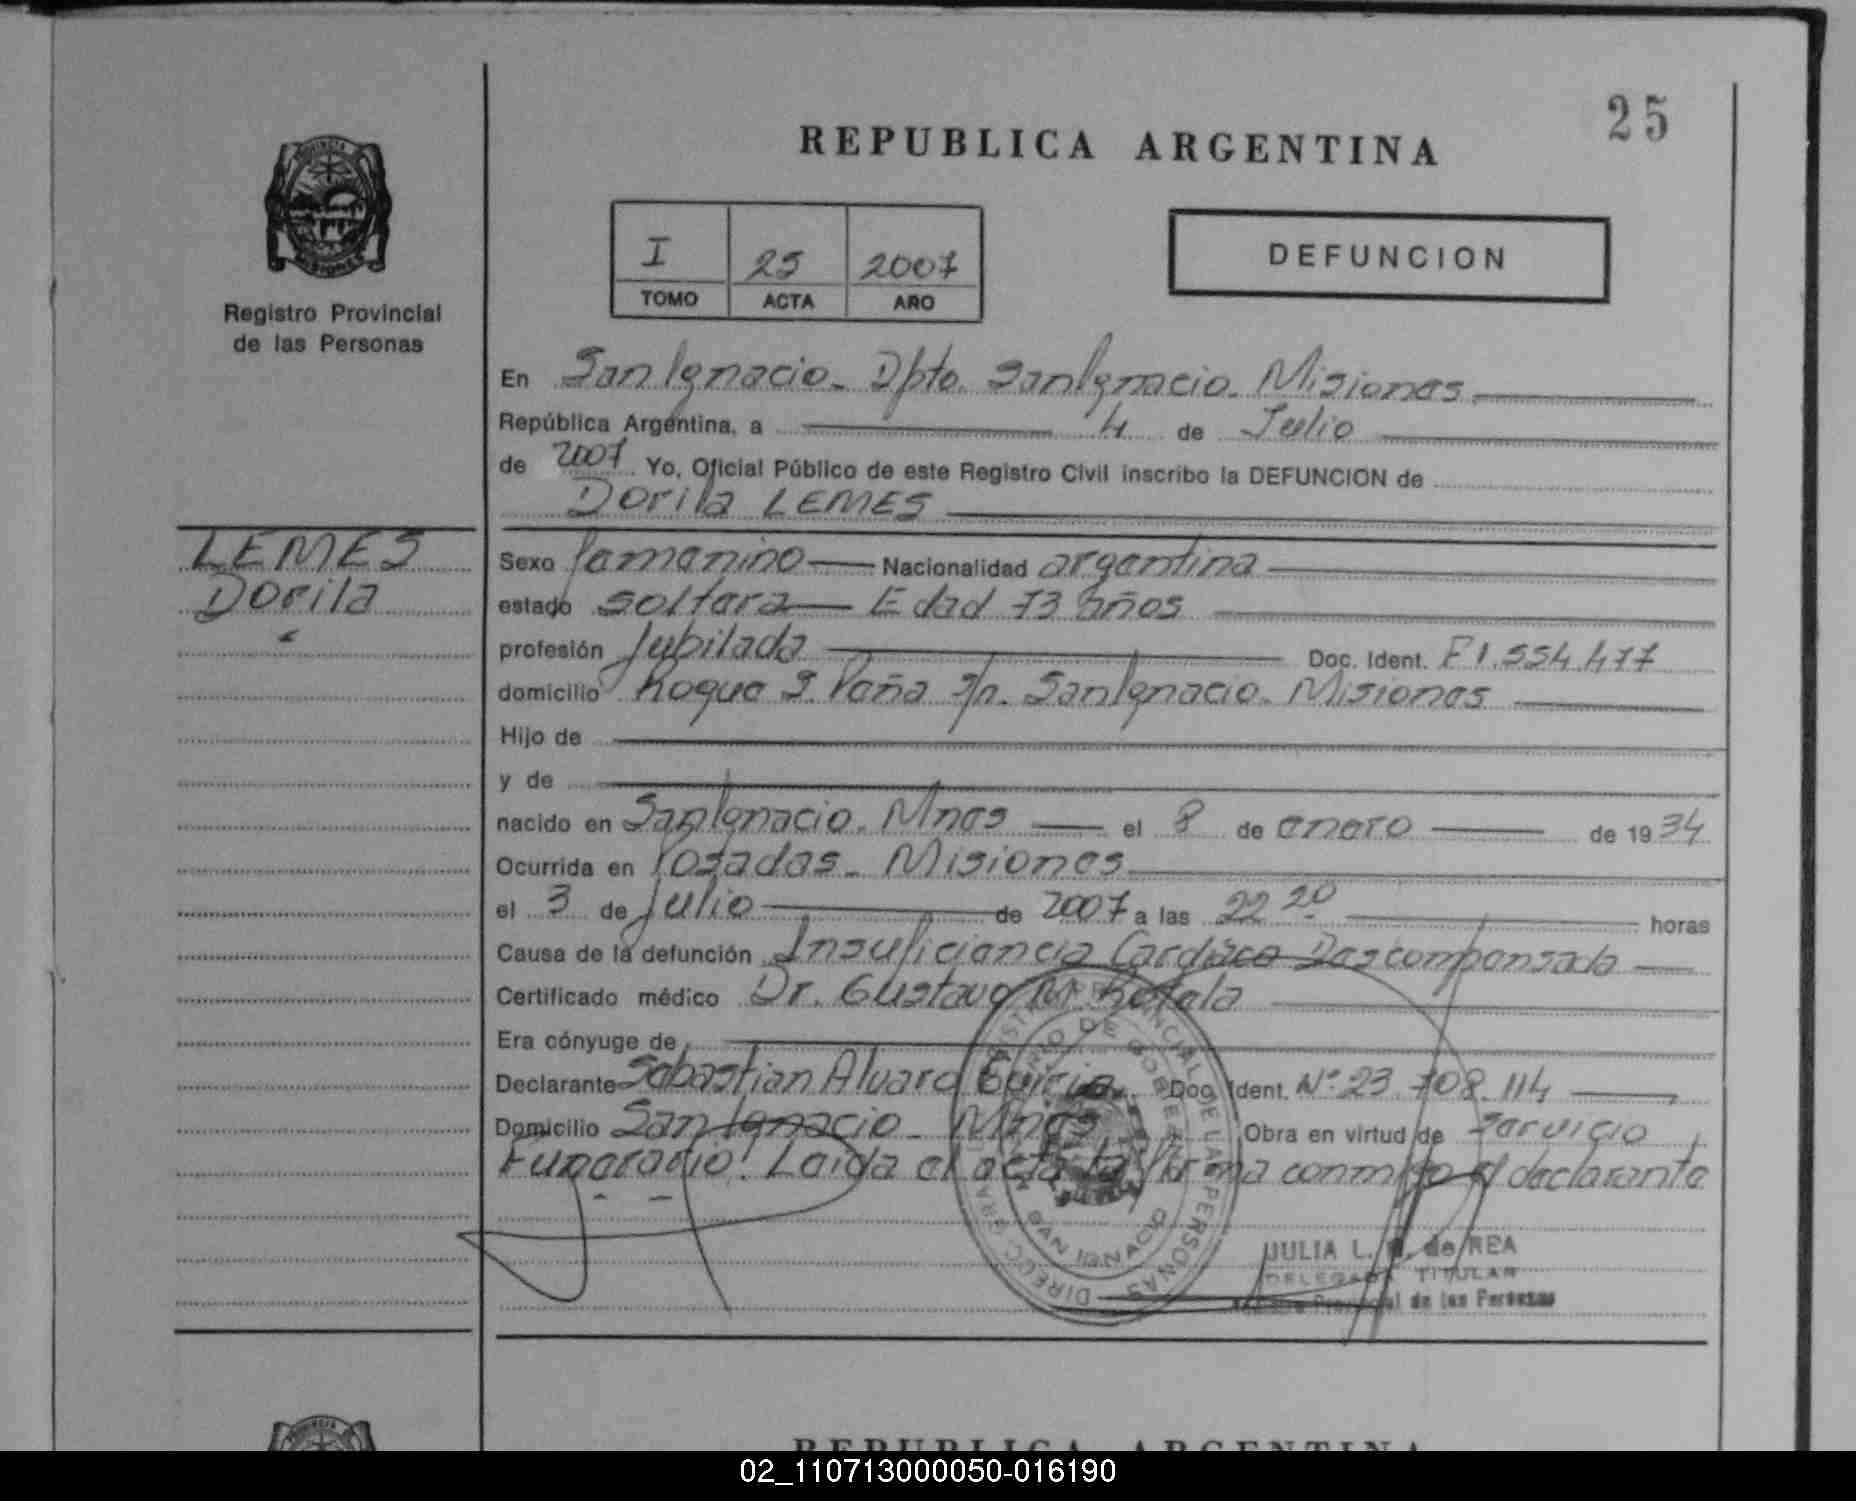 25
REPUBLICA ARGENTINA
PROVINCIA DE
MISIONES
Registro Provincial
de las Personas
I 25 2007
TOMO ACTA AÑO
DEFUNCION
En San Ignacio - Dpto. San Ignacio - Misiones
República Argentina, a 4 de Julio
de 2007 Yo, Oficial Público de este Registro Civil inscribo la DEFUNCION de
Dorila LEMES
LEMES
Dorila
Sexo femenino Nacionalidad argentina
estado soltera Edad 73 años
profesión Jubilada Doc. Ident. F 1.554.477
domicilio Roque S. Peña s/n. San Ignacio - Misiones
Hijo de
y de
nacido en San Ignacio - Mnes el 8 de enero de 1934
Ocurrida en Posadas - Misiones
el 3 de julio de 2007 a las 22 20 horas
Causa de la defunción Insuficiencia Cardíaca Descompensada
Certificado médico Dr. Gustavo M.
Era cónyuge de
Declarante Sebastian Alvaro Doc. Ident. Nº 23.708.114
Domicilio San Ignacio - Mnes Obra en virtud de Servicio
Funerario! Leída el acta la firma conmigo el declarante
SAN IGNACIO
JULIA L. de REA
DELEGADA TITULAR
Registro Provincial de las Personas
REPUBLICA ARGENTINA
02_110713000050-016190